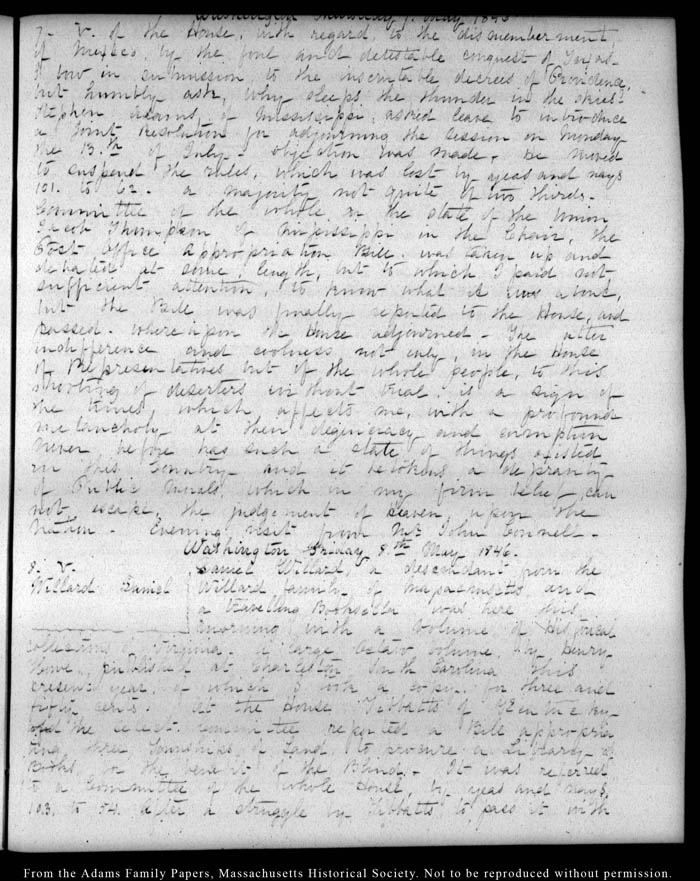 Washington Thursday 7. May 1846
7. V. of the House, with regard, to the dismemberment
of Mexico by the foul and detestable conquest of Texas.
I bow in submission to the inscrutable decrees of Providence,
but humbly ask, why sleeps the thunder in the skies?
Stephen Adams, of Mississippi, asked leave to introduce
a joint Resolution for adjourning the session on Monday
the 13.th of July - objection was made. He moved
to suspend the rules, which was lost by yeas and nays
101. to 62. a majority not quite of two thirds.
Committee of the whole on the state of the Union
Jacob Thompson of Mississippi in the Chair, the
Post Office Appropriation Bill, was taken up and
debated at some length, but to which I paid not
sufficient attention, to know what it was about,
but the Bill was finally reported to the House, and
passed. whereupon the House adjourned - The utter
indifference and coolness not only, in the House
of Representatives but of the whole people, to this
shooting of deserters without trial, is a sign of
the times, which affects me, with a profound
melancholy at their degeneracy and corruption
never before has such a state of things existed
in this Country and it betokens a depravity
of Public Morals, which in my firm belief, can
not escape, the judgement of Heaven, upon the
Nation. Evening visit from Mr John Connell -
Washington Friday 8.th May 1846.
8. V.
Willard Daniel
Daniel Willard, a descendant from the
Willard family, of Massachusetts and
a travelling Bookseller was here this
morning with a volume of Historical
collections of Virginia. a large octavo volume, by Henry
Howe, published at Charleston South Carolina this
present year, of which I took a copy for three and
fifty cents. At the House Tibbatts of Kentucky
the select committee reported a Bill appropria
ting three Townships of Land, to procure a Library of
Books, for the benefit of the Blind - It was referred
to a Committee of the whole House, by yeas and nays,
103. to 54. after a struggle by Tibbatts to pass it with
From the Adams Family Papers, Massachusetts Historical Society. Not to be reproduced without permission.